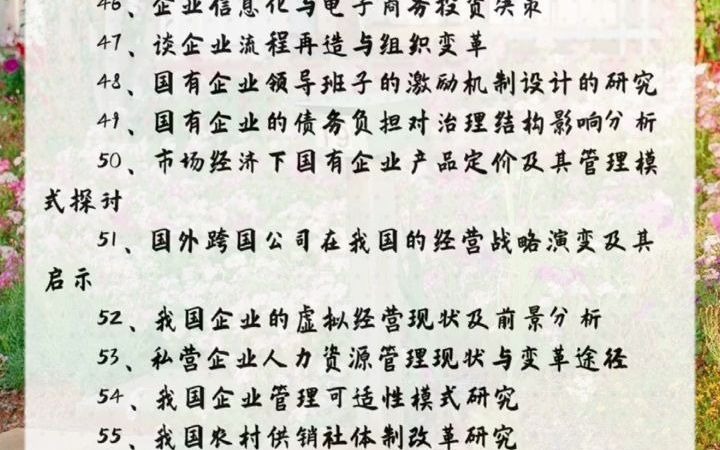 46、企业信息化与电子商务投资决策
47、谈企业流程再造与组织变革
48、国有企业领导班子的激励机制设计的研究
49、国有企业的债务负担对治理结构影响分析
50、市场经济下国有企业产品定价及其管理模
式探讨
51、国外跨国公司在我国的经营战略演变及其
启示
52、我国企业的虚拟经营现状及前景分析
53、私营企业人力资源管理现状与变革途径
54、我国企业管理可适性模式研究
55、我国农村供销社体制改革研究